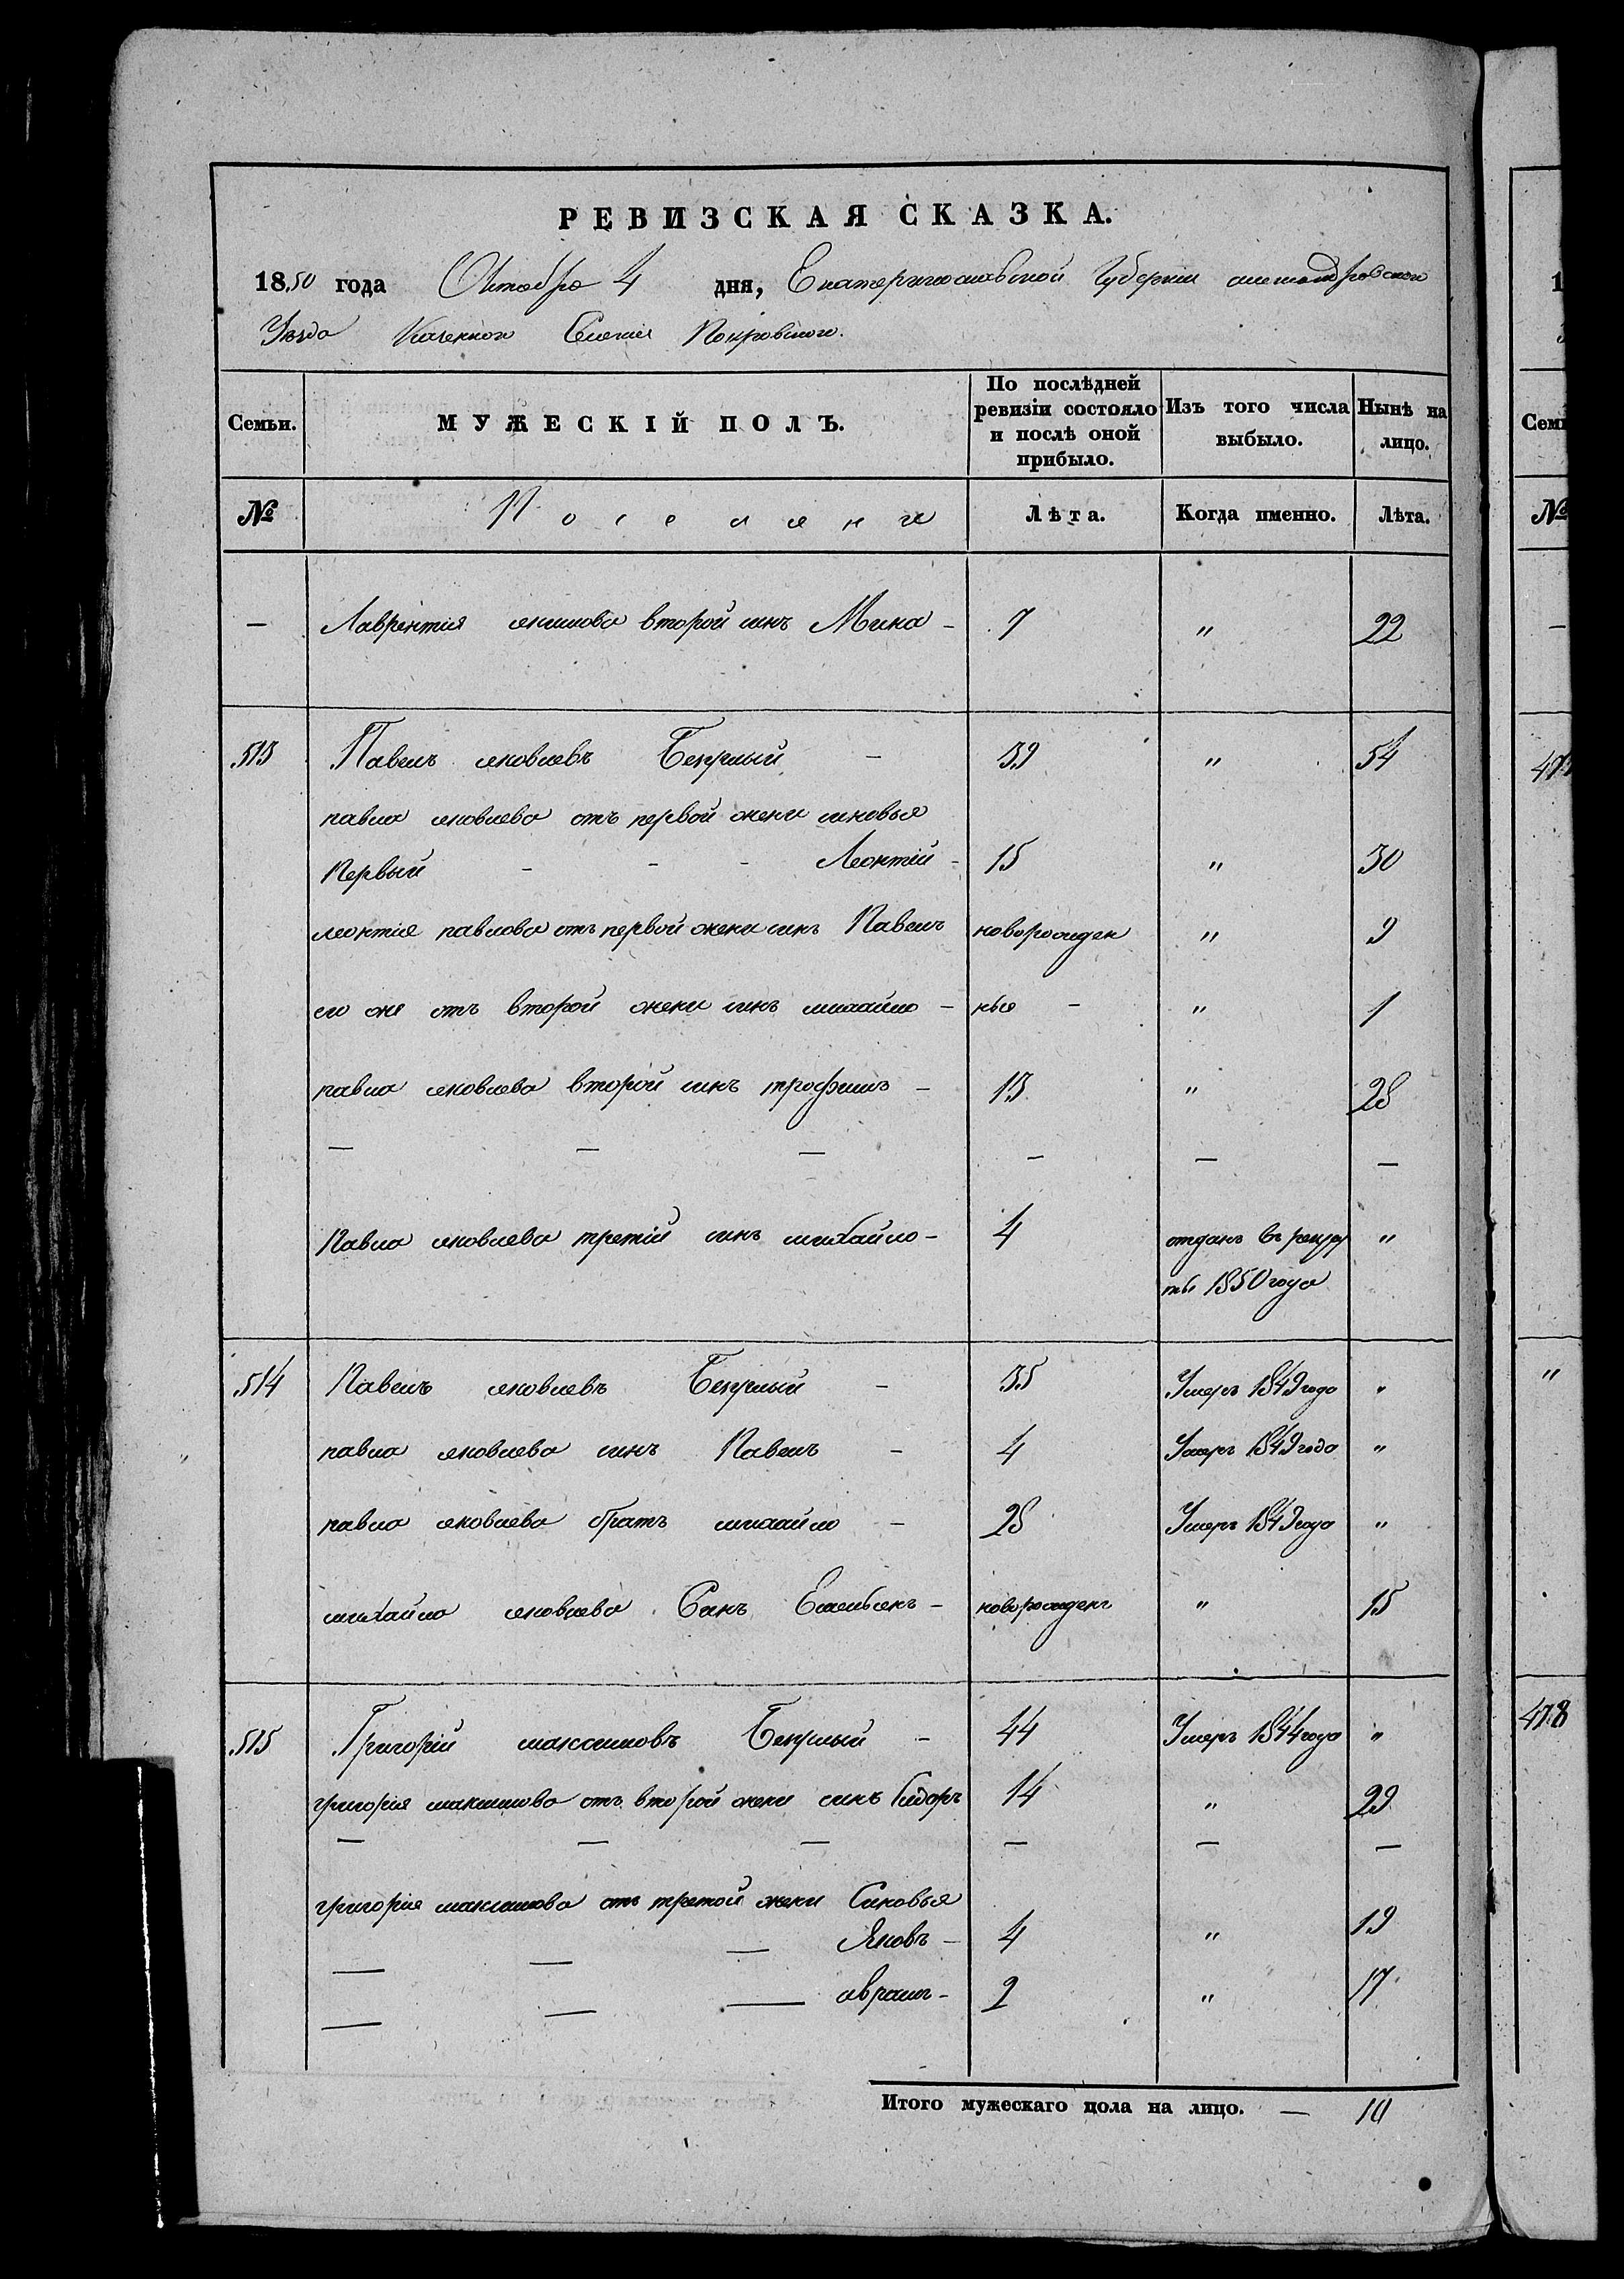 РЕВИЗСКАЯ СКАЗКА.
1850 года Октября 4 дня, Екатеринославской Губернии александровского
Уезда Казенного Селения Покровского.
Семьи. МУЖЕСКІЙ ПОЛЪ. По послѣдней ревизіи состояло и послѣ оной прибыло. Изъ того числа выбыло. Нынѣ на лицо.
№ Поселяне Лѣта. Когда именно. Лѣта.
— Лаврентия екимова второй синъ Мина - 7 " 22
513 Павелъ яковлевъ - 39 " 54
павла яковлева отъ первой жени синовья
Первый - - - Леонтій - 15 " 30
леонтия павлова отъ первой жени синъ Павелъ новорожден " 9
его же отъ второй жени синъ михайло - ные - " 1
павла яковлева второй синъ трофимъ - 13 " 28
— — — — — —
Павла яковлева третій синъ михайло - 4 отданъ въ рекру "
ты 1850 года
514 Павелъ яковлевъ - 35 Умеръ 1849 года "
павла яковлева синъ Павелъ - 4 Умеръ 1849 года "
павла яковлева братъ михайло - 28 Умеръ 1849 года "
михайла яковлева Синъ Емельянъ - новорожденъ " 15
515 Григорій максимовъ - 44 Умеръ 1844 года "
григория максимова отъ второй жени синъ Сидоръ 14 " 29
— — — — — —
григория максимова отъ третой жени Синовья
— — — Яковъ - 4 " 19
— — — аврамъ - 2 " 17
Итого мужескаго пола на лицо. — 10
478